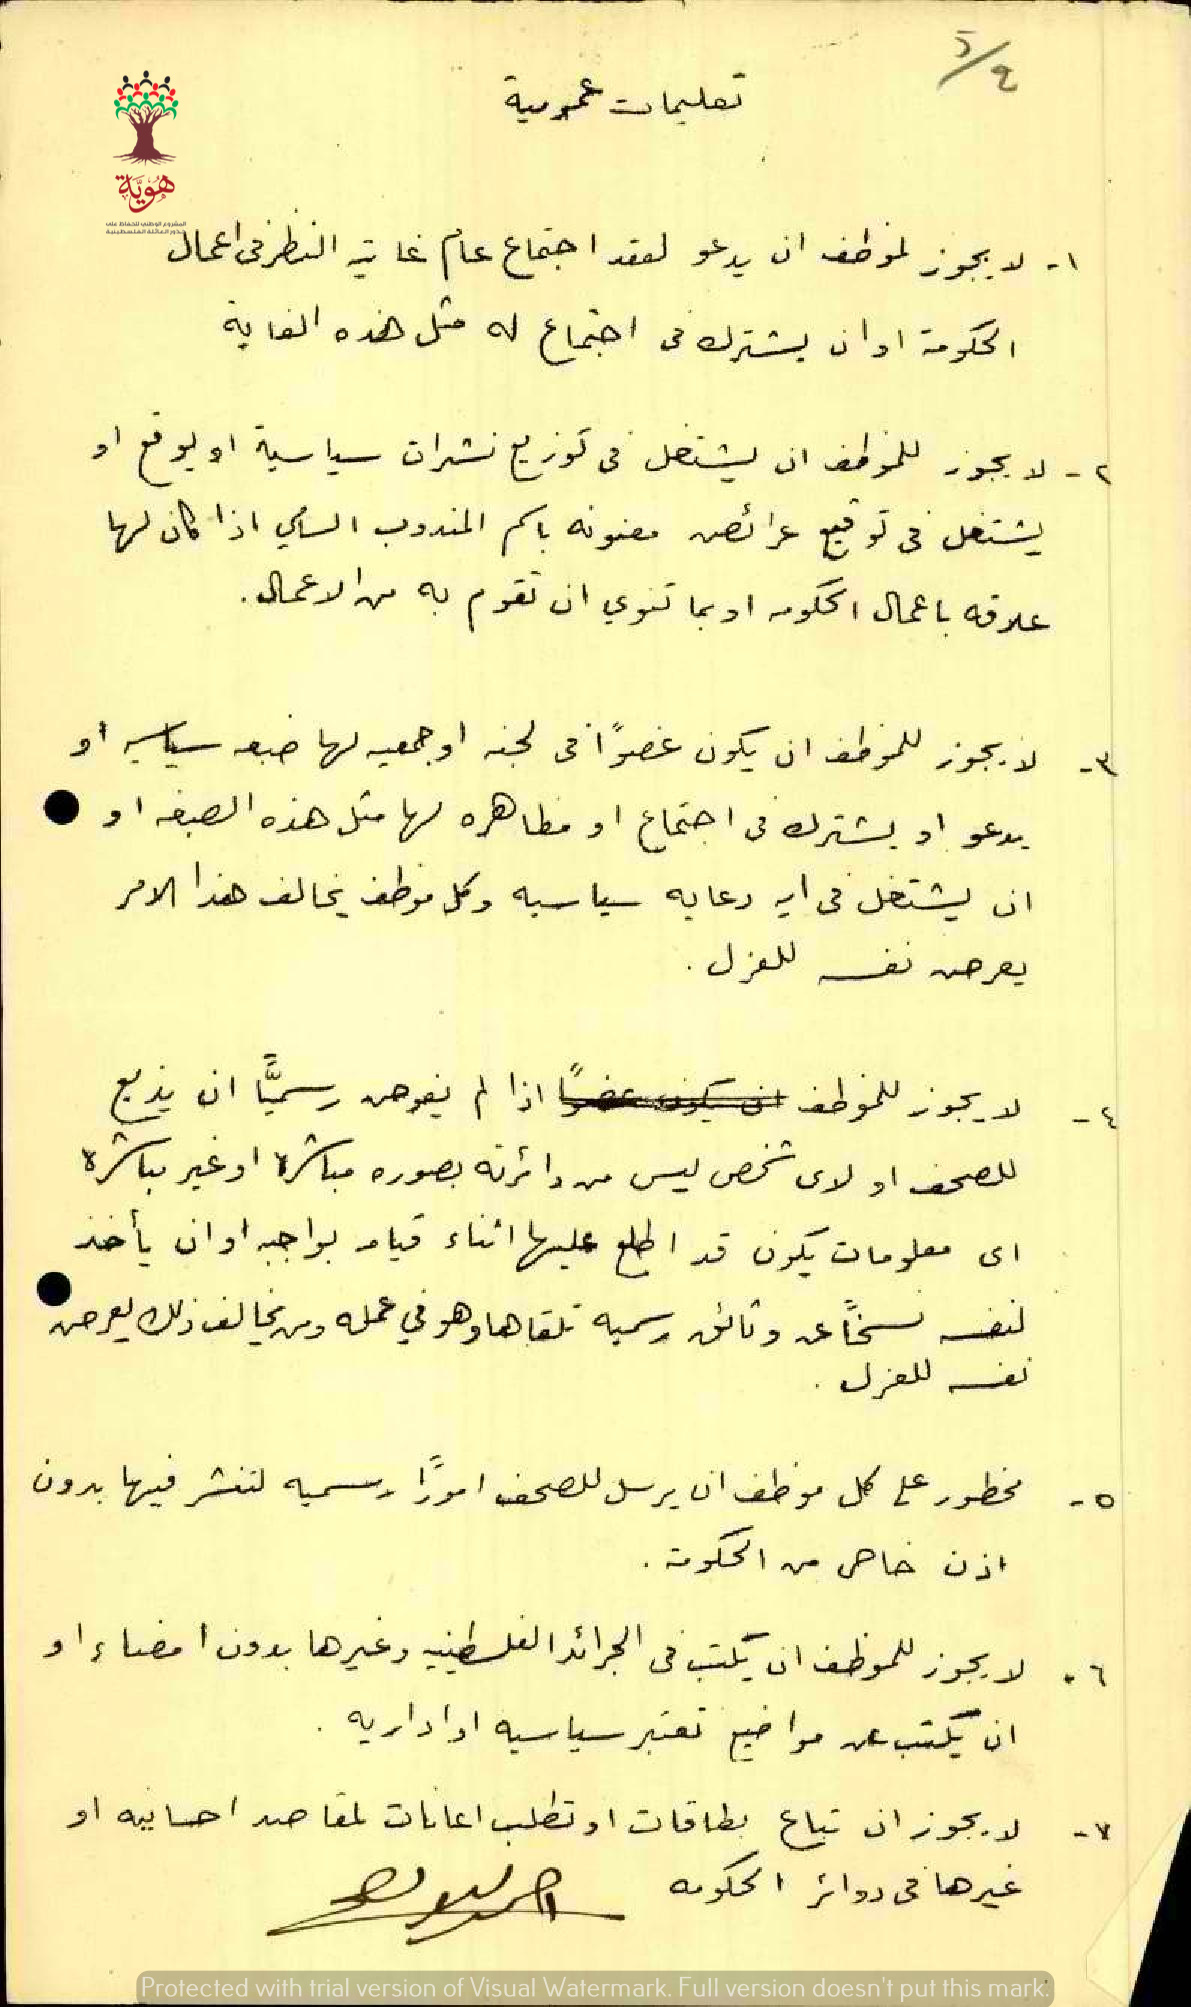 ٥/٤
تعليمات عمومية
هُوِيَّة
المشروع الوطني للحفاظ على
جذور العائلة الفلسطينية
١- لا يجوز لموظف ان يدعو لعقد اجتماع عام غايته النظر في اعمال
الحكومة او ان يشترك في اجتماع له مثل هذه الغاية
٢- لا يجوز للموظف ان يشتغل في توزيع نشرات سياسية او يوقع او
يشتغل في توقيع عرائض معنونه باسم المندوب السامي اذا كان لها
علاقه باعمال الحكومه او بما تنوي ان تقوم به من الاعمال.
٣- لا يجوز للموظف ان يكون عضوًا في لجنه او جمعيه لها صبغه سياسيه او
يدعو او يشترك في اجتماع او مظاهره لها مثل هذه الصبغه او
ان يشتغل في ايه دعايه سياسيه وكل موظف يخالف هذا الامر
يعرض نفسه للعزل.
٤- لا يجوز للموظف ان يكون عضوًا اذا لم يفوض رسميًّا ان يذيع
للصحف او لاى شخص ليس من دائرته بصوره مباشرة او غير مباشرة
اى معلومات يكون قد اطلع عليها اثناء قيامه بواجبه او ان يأخذ
لنفسه نسخًا عن وثائق رسميه تلقاها وهو في عمله ومن يخالف ذلك يعرض
نفسه للعزل.
٥- محظور على كل موظف ان يرسل للصحف امورًا رسميه لتنشر فيها بدون
اذن خاص من الحكومة.
٦- لا يجوز للموظف ان يكتب في الجرائد الفلسطينيه وغيرها بدون امضاء او
ان يكتب عن مواضيع تعتبر سياسيه او اداريه.
٧- لا يجوز ان تباع بطاقات او تطلب اعانات لمقاصد احسانيه او
غيرها في دوائر الحكومه
Protected with trial version of Visual Watermark. Full version doesn't put this mark.